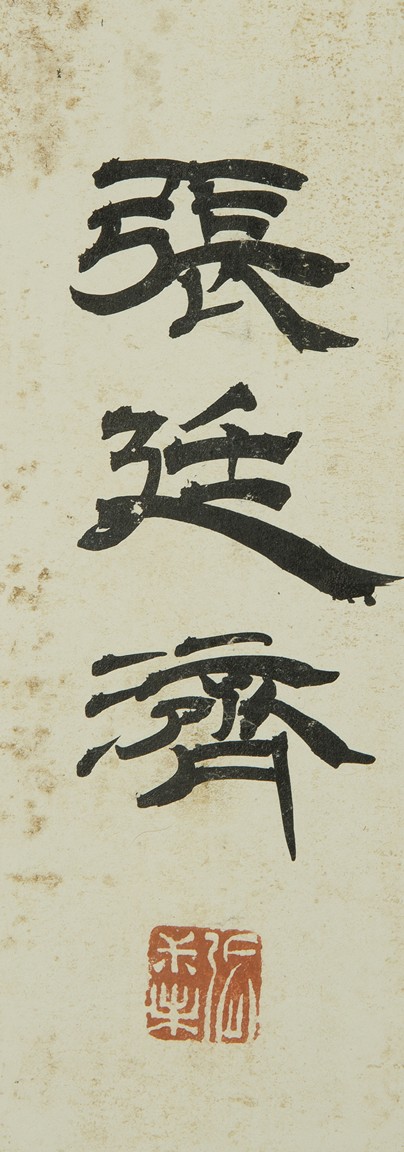 張廷濟